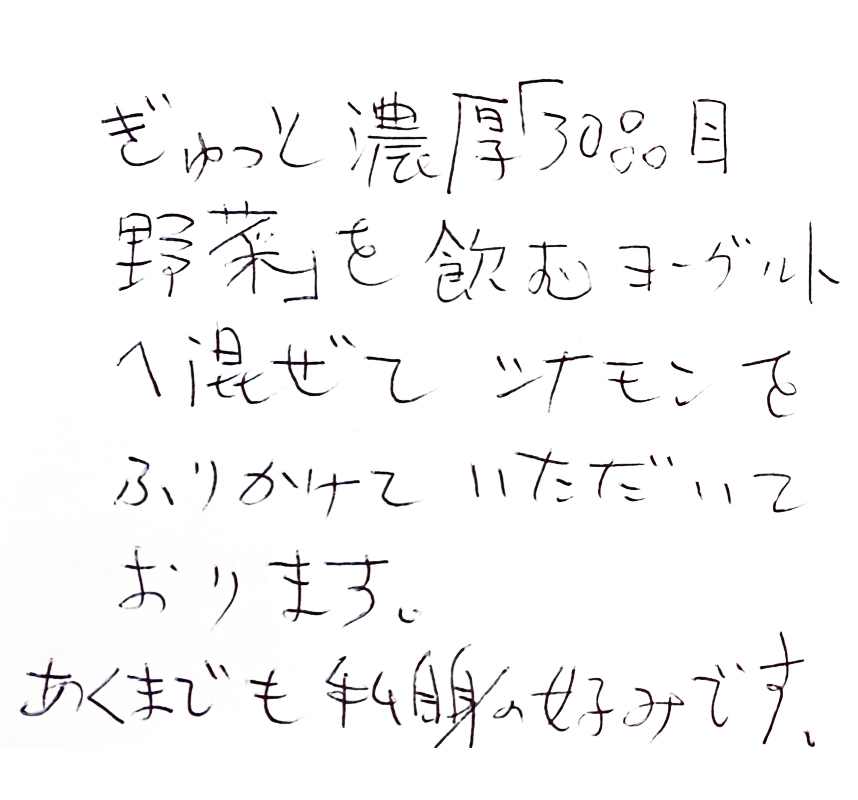 ぎゅっと濃厚「30品目
野菜」を飲むヨーグルト
へ混ぜてシナモンを
ふりかけていただいて
おります。
あくまでも私自身の好みです。